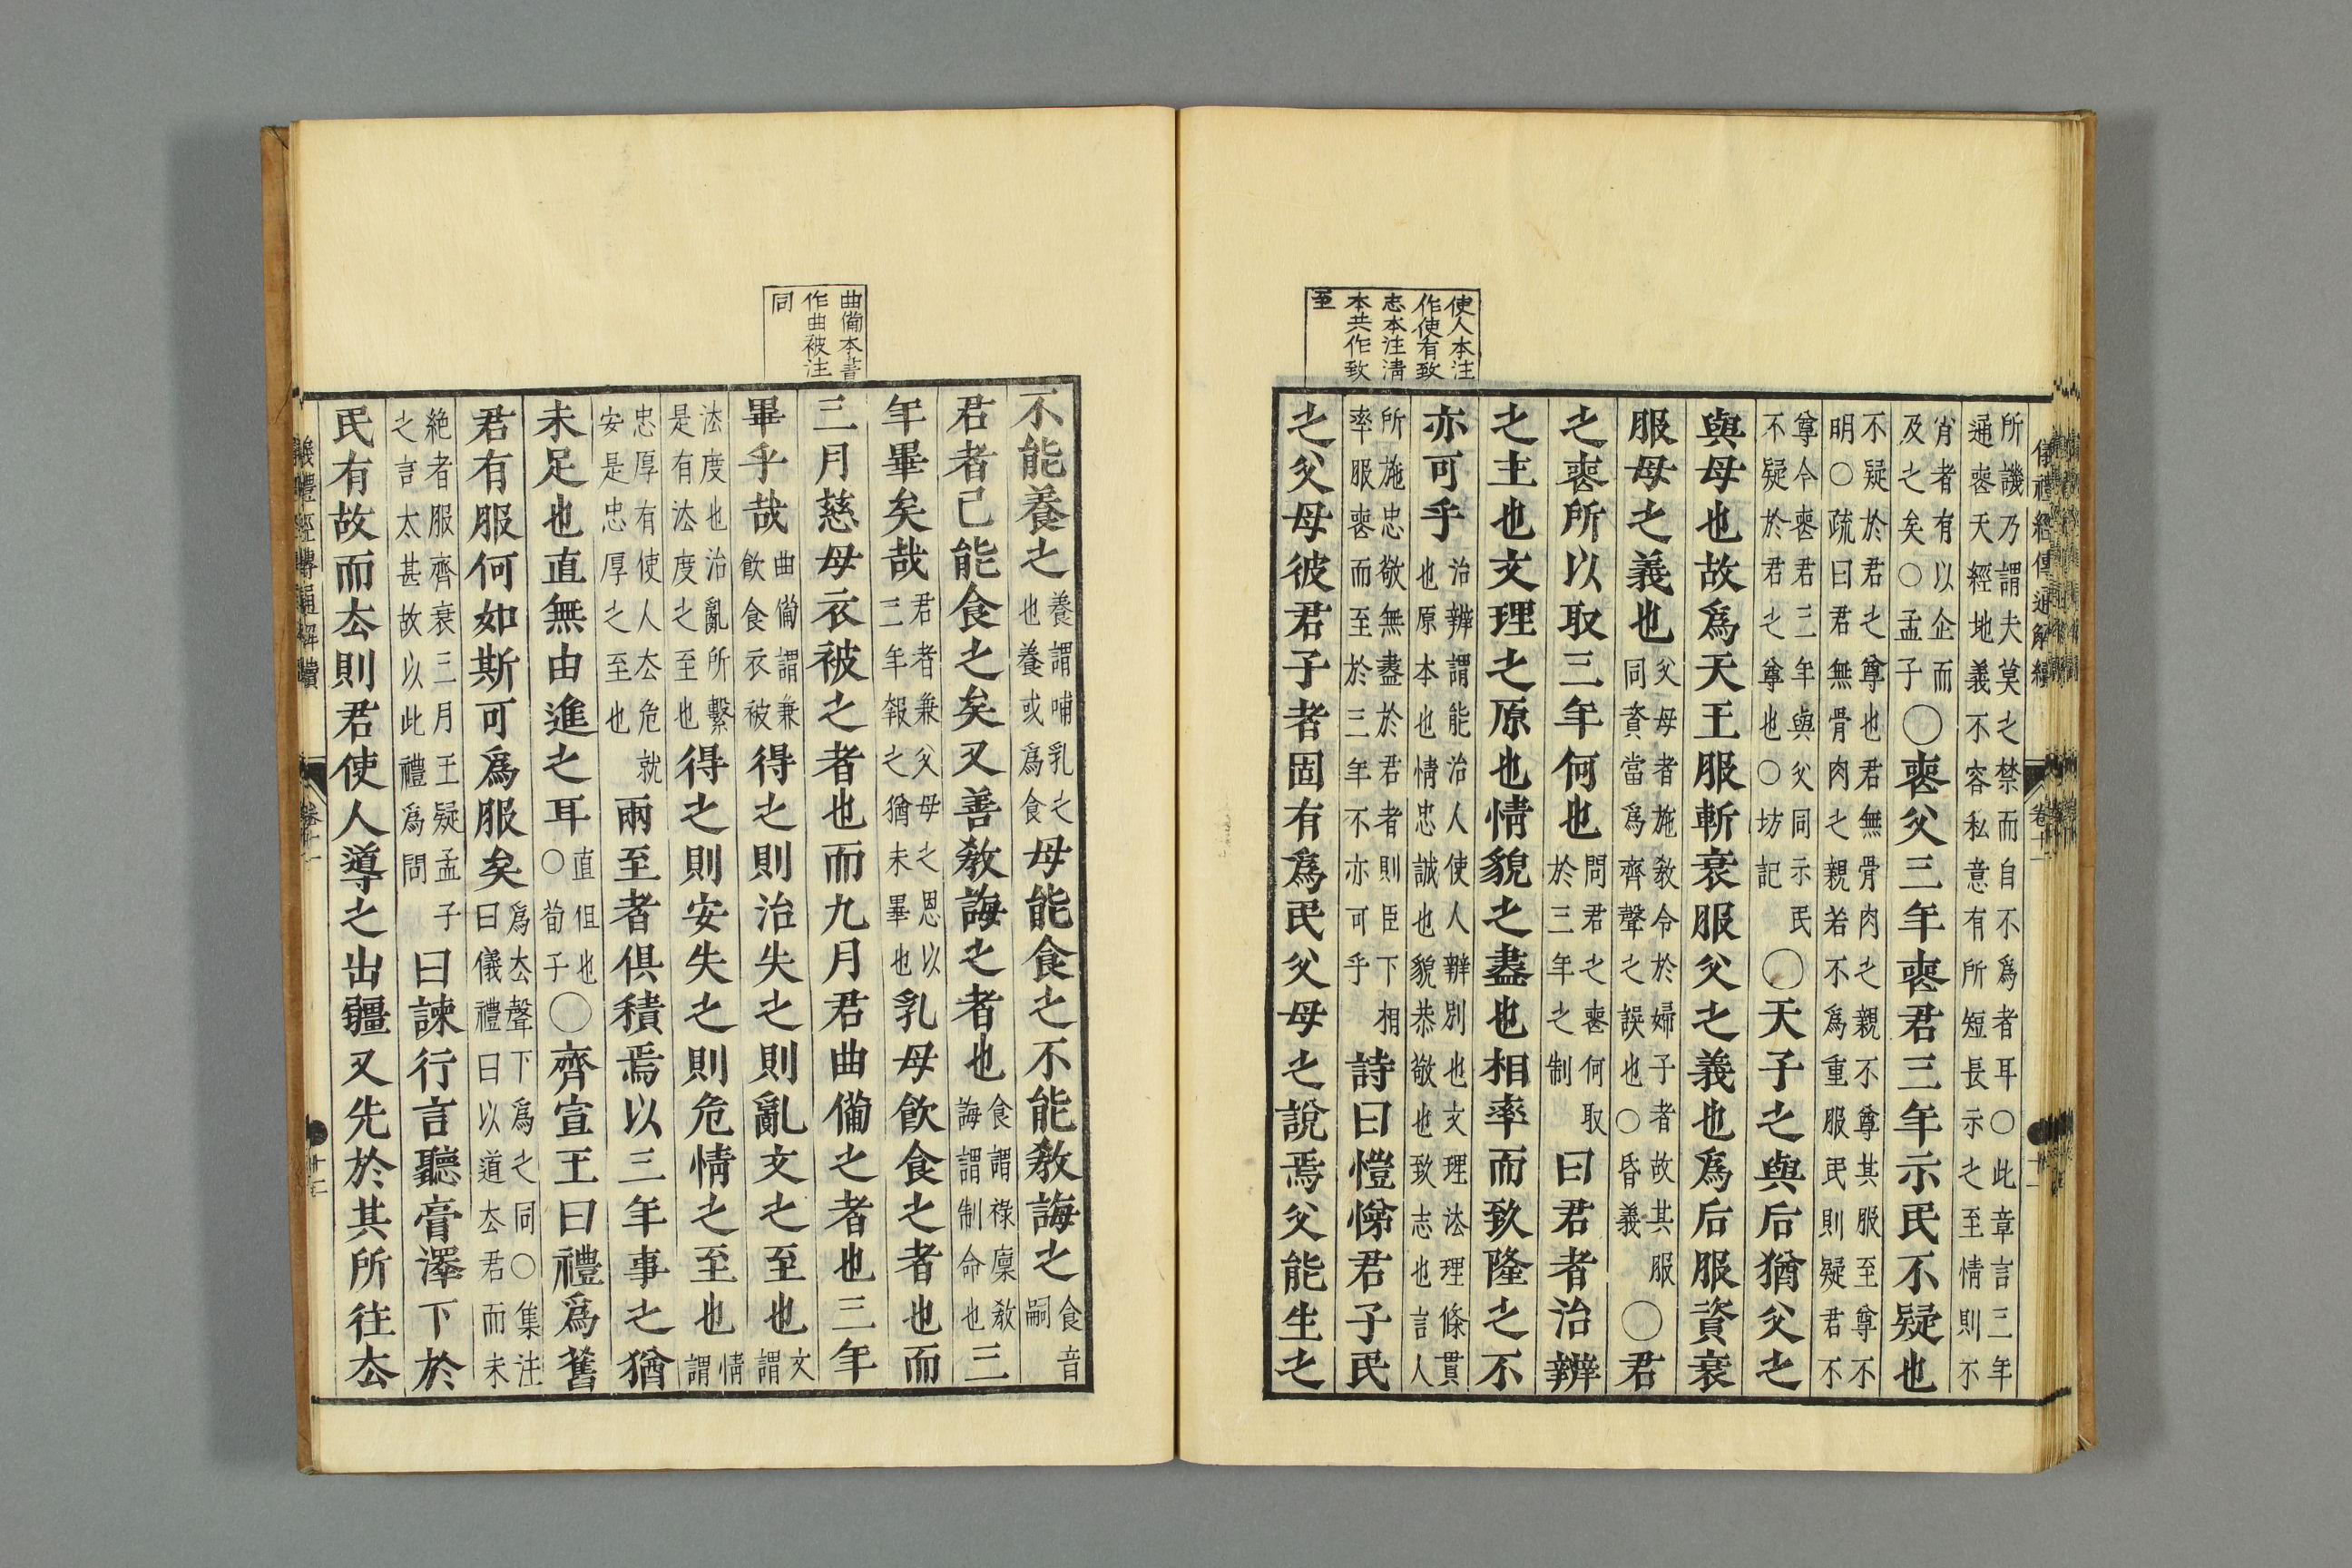 儀禮經傳通解續
卷十一
所譏乃謂夫莫之禁而自不爲者耳○此章言三年
通喪天經地義不容私意有所短長示之至情則不
肖者有以企而
及之矣○孟子
○喪父三年喪君三年示民不疑也
不疑於君之尊也君無骨肉之親不尊其服至尊不
明○疏曰君無骨肉之親若不爲重服民則疑君不
尊今喪君三年與父同示民
不疑於君之尊也○坊記
○天子之與后猶父之
與母也故爲天王服斬衰服父之義也爲后服資衰
服母之義也
父母者施敎令於婦子者故其服
同資當爲齊聲之誤也○昏義
○君
之喪所以取三年何也
問君之喪何取
於三年之制
曰君者治辨
之主也文理之原也情貌之盡也相率而致隆之不
亦可乎
治辨謂能治人使人辨別也文理法理條貫
也原本也情忠誠也貌恭敬也致志也言人
所施忠敬無盡於君者則臣下相
率服喪而至於三年不亦可乎
詩曰愷悌君子民
之父母彼君子者固有爲民父母之說焉父能生之
使人本注
作使有致
志本注淸
本共作致
至
不能養之
養謂哺乳之
也養或爲食
母能食之不能敎誨之
食音
嗣
君者已能食之矣又善敎誨之者也
食謂祿廩敎
誨謂制命也
三
年畢矣哉
君者兼父母之恩以
三年報之猶未畢也
乳母飮食之者也而
三月慈母衣被之者也而九月君曲備之者也三年
畢乎哉
曲備謂兼
飮食衣被
得之則治失之則亂文之至也
文
謂
法度也治亂所繫
是有法度之至也
得之則安失之則危情之至也
情
謂
忠厚有使人去危就
安是忠厚之至也
兩至者俱積焉以三年事之猶
未足也直無由進之耳
直但也
○荀子
○齊宣王曰禮爲舊
君有服何如斯可爲服矣
爲去聲下爲之同○集注
曰儀禮曰以道去君而未
絶者服齊衰三月王疑孟子
之言太甚故以此禮爲問
曰諫行言聽膏澤下於
民有故而去則君使人導之出疆又先於其所往去
曲備本書
作曲被注
同
儀禮經傳通解續
卷十一
十二